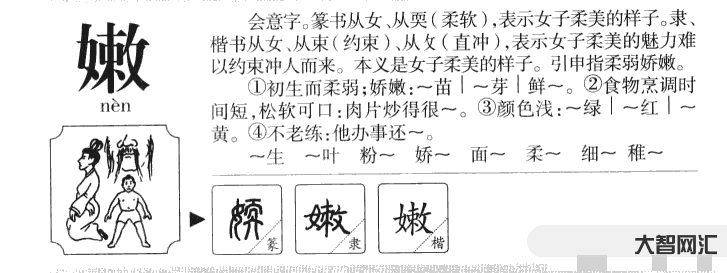 嫩
nèn
会意字。篆书从女、从耎(柔软),表示女子柔美的样子。隶、
楷书从女、从束(约束)、从攵(直冲),表示女子柔美的魅力难
以约束冲人而来。本义是女子柔美的样子。引申指柔弱娇嫩。
①初生而柔弱;娇嫩:~苗|~芽|鲜~。②食物烹调时
间短,松软可口:肉片炒得很~。③颜色浅:~绿|~红|~
黄。④不老练:他办事还~。
~生 ~叶 粉~ 娇~ 面~ 柔~ 细~ 稚~
篆
嫩 隶
嫩 楷
大智网汇